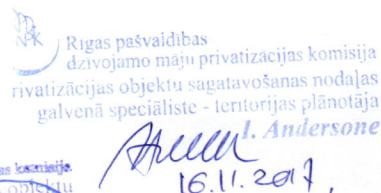 Rīgas pašvaldības
dzīvojamo māju privatizācijas komisija
rivatizācijas objektu sagatavošanas nodaļas
galvenā speciāliste - teritorijas plānotāja
I. Andersone
as komisija
objektu
16.11.2017,